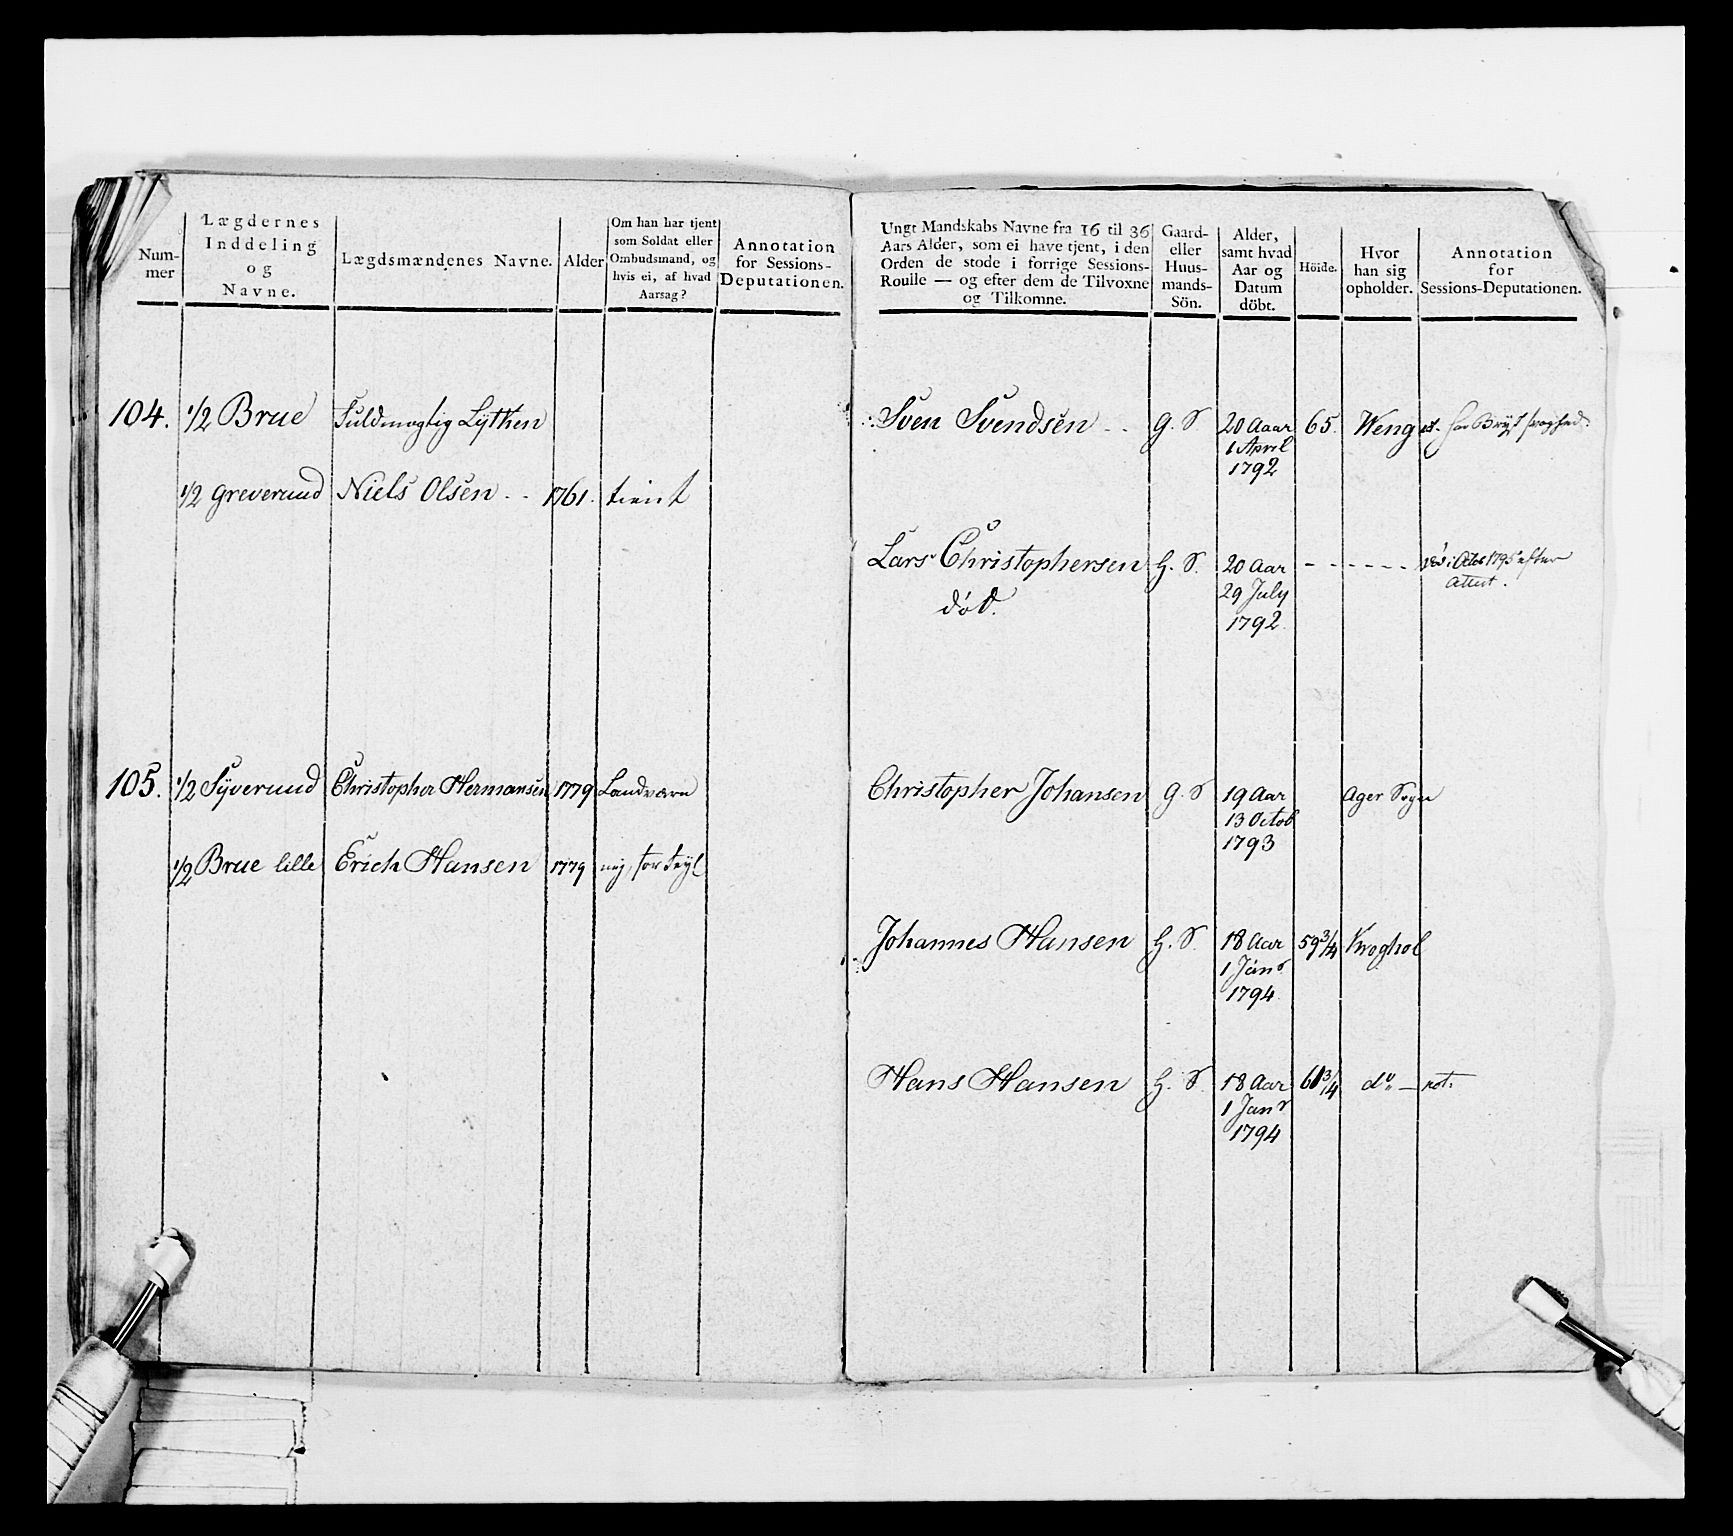 Num-
mer
Lægdernes
Inddeling
og
Navne.
Lægdsmændenes Navne.
Alder
Om han har tjent
som Soldat eller
Ombudsmand, og
hvis ei, af hvad
Aarsag?
Annotation
for Sessions-
Deputationen.
104. 1/2 Brue Fuldmægtig Lythen
1/2 Greverud Niels Olsen - - 1761. tient
105. 1/2 Syverud Christopher Hermansen 1779 Landværn
1/2 Brue lille Erich Hansen 1779 nej, for
Ungt Mandskabs Navne fra 16 til 36
Aars Alder, som ei have tjent, i den
Orden de stode i forrige Sessions-
Roulle — og efter dem de Tilvoxne
og Tilkomne.
Gaard-
eller
Huus-
mands-
Sön.
Alder,
samt hvad
Aar og
Datum
döbt.
Höide.
Hvor
han sig
opholder.
Annotation
for
Sessions-Deputationen.
Sven Svendsen - - G. S 20 Aaar 65. Weng har Bryst svaghed
1 April
1792
Lars Christophersen H. S. 20 Aar - - - - - - død i Octob 1795 efter
død. 29 July Attest.
1792.
Christopher Johansen G. S 19 Aar Ager Sogn
13 Octob
1793
Johannes Hansen H. S. 18 Aar 59 3/4 Kroghol
1 Janr
1794.
Hans Hansen H. S. 18 Aar 61 3/4 do — not.
1 Janr
1794